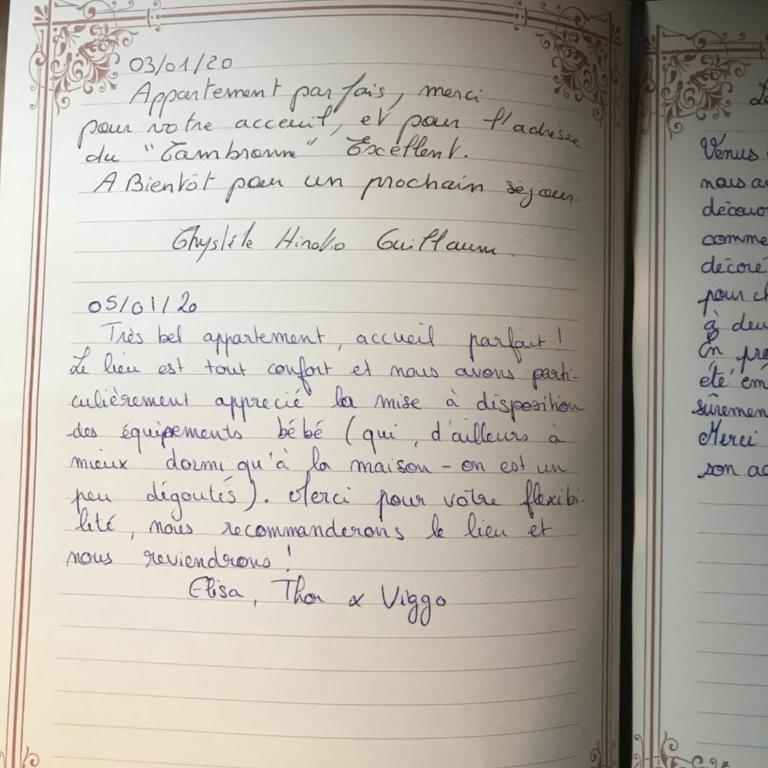 03/01/20
Appartement parfais, merci
pour votre acceuil, et pour l'adresse
du "Cambronne" Excellent.
A Bientôt pour un prochain séjour.
Guillaum
05/01/20
Très bel appartement, accueil parfait !
Le lieu est tout confort et nous avons parti-
culièrement apprecié la mise à disposition
des équipements bébé (qui, d'ailleurs à
mieux dormi qu'à la maison - on est un
peu dégoutés). Merci pour votre flexibi-
lité, nous recommanderons le lieu et
nous reviendrons !
Elisa, Thor & Viggo
Venus
nous av
découv
comme
décoré
pour ch
à deu
En pro
été em
sûremen
Merci
son ac